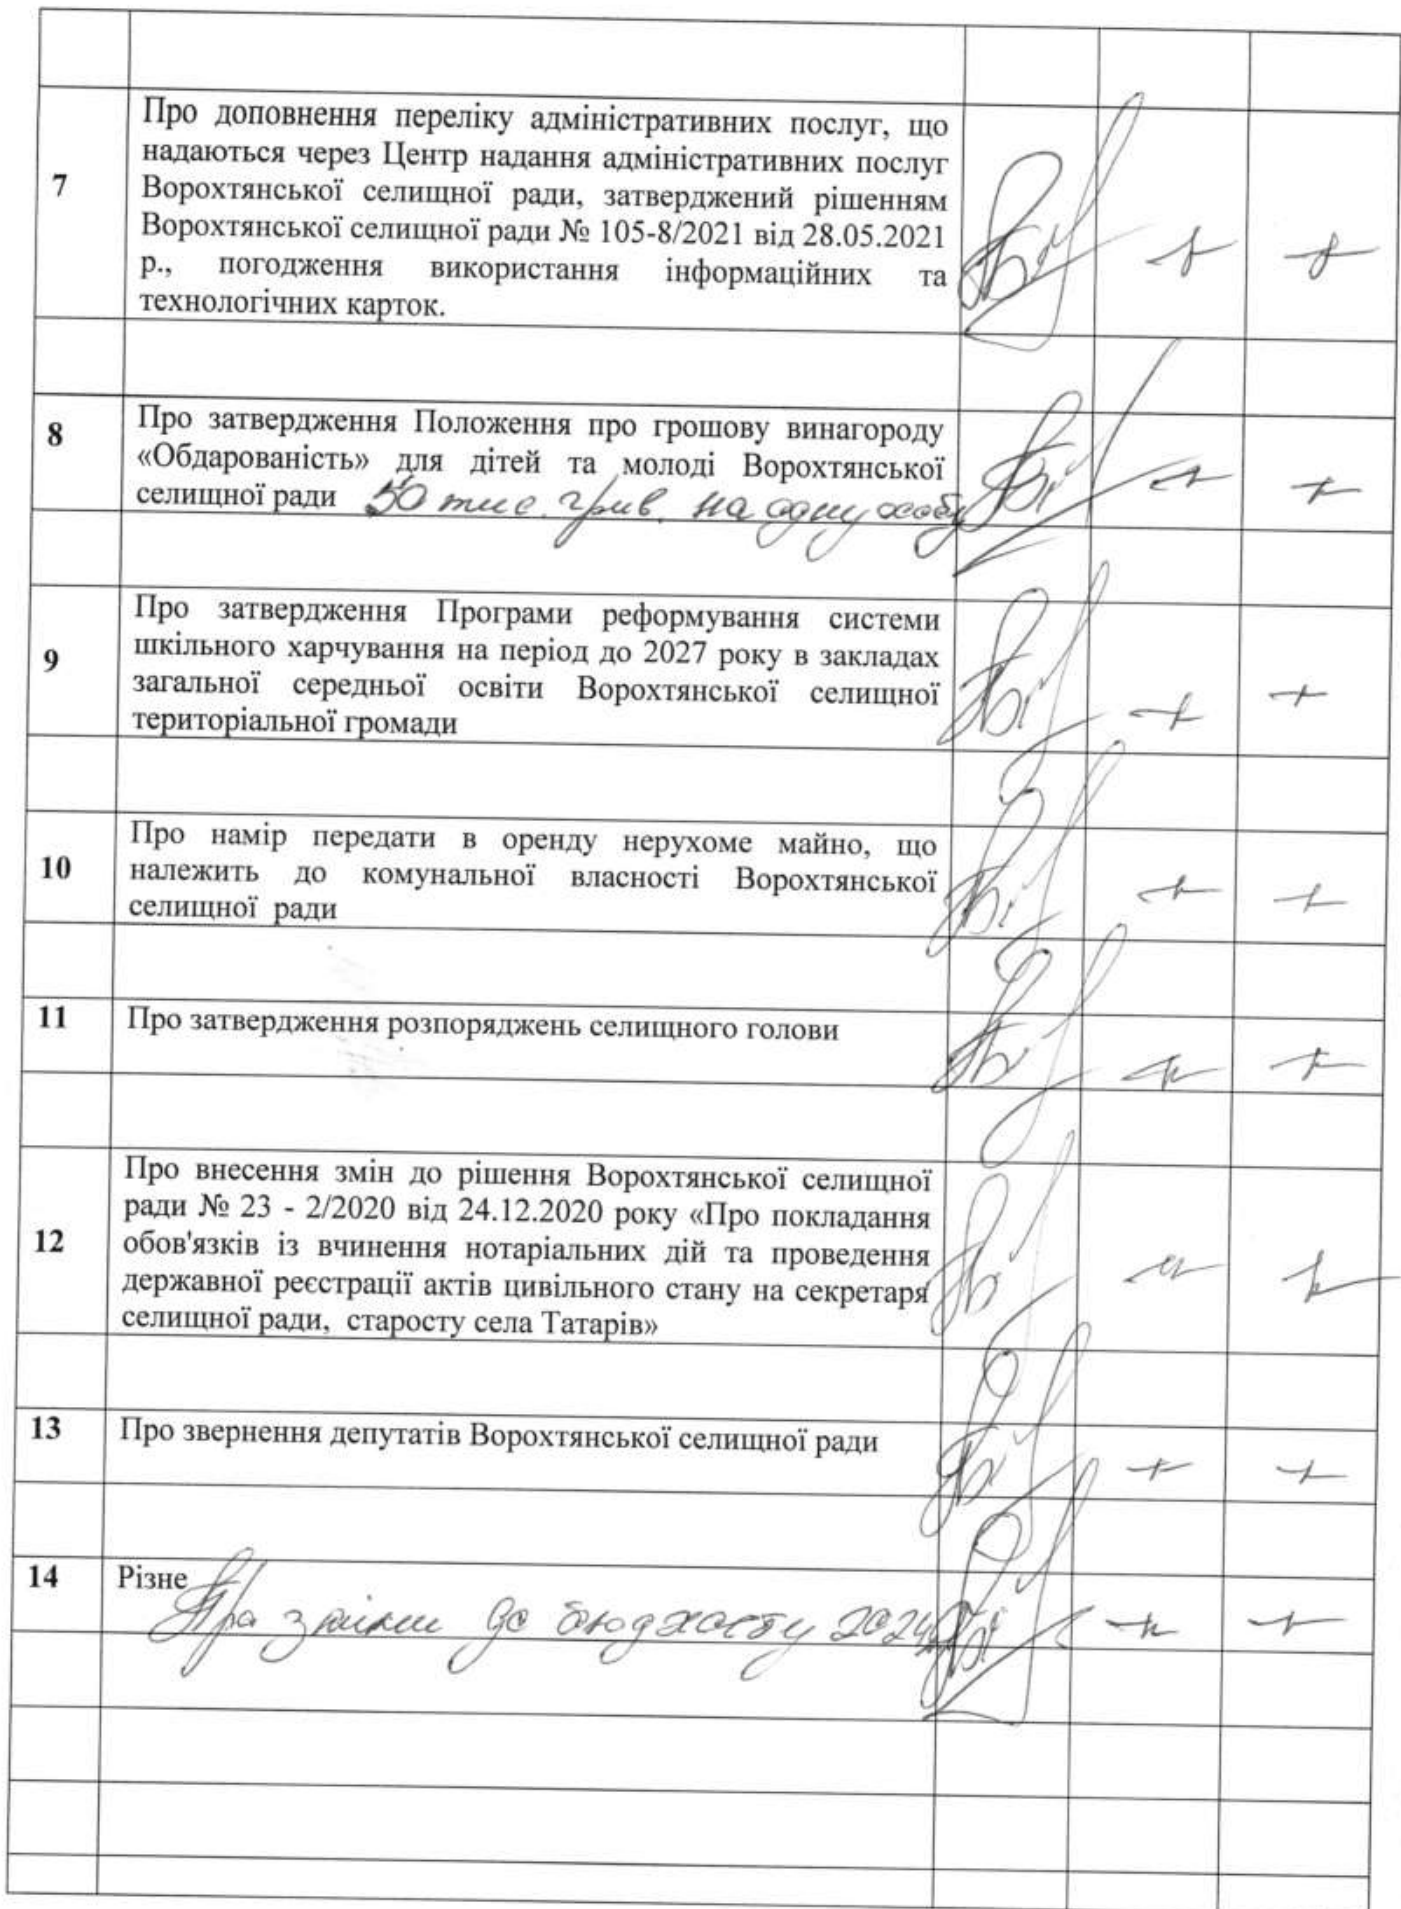 7
Про доповнення переліку адміністративних послуг, що
надаються через Центр надання адміністративних послуг
Ворохтянської селищної ради, затверджений рішенням
Ворохтянської селищної ради № 105-8/2021 від 28.05.2021
р., погодження використання інформаційних та
технологічних карток.
+ +
8
Про затвердження Положення про грошову винагороду
«Обдарованість» для дітей та молоді Ворохтянської
селищної ради 50 тис. грив. на одну особу
+ +
9
Про затвердження Програми реформування системи
шкільного харчування на період до 2027 року в закладах
загальної середньої освіти Ворохтянської селищної
територіальної громади
+ +
10
Про намір передати в оренду нерухоме майно, що
належить до комунальної власності Ворохтянської
селищної ради
+ +
11 Про затвердження розпоряджень селищного голови
+ +
12
Про внесення змін до рішення Ворохтянської селищної
ради № 23 - 2/2020 від 24.12.2020 року «Про покладання
обов'язків із вчинення нотаріальних дій та проведення
державної реєстрації актів цивільного стану на секретаря
селищної ради, старосту села Татарів»
+ +
13 Про звернення депутатів Ворохтянської селищної ради
+ +
14 Різне
Про зміни до бюджету 2024
+ +